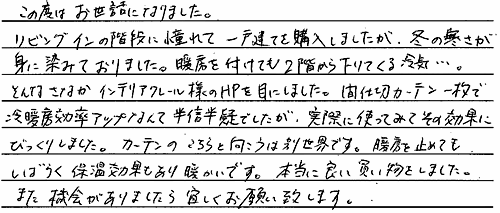 この度は お世話になりました。
リビングインの階段に憧れて 一戸建てを購入しましたが、冬の寒さが
身に染みておりました。暖房を付けても2階から下りてくる冷気…。
そんなさなか インテリアクレール様のHPを目にしました。間仕切カーテン一枚で
冷暖房効率アップなんて半信半疑でしたが、実際に使ってみてその効果に
びっくりしました。カーテンのこちらと向こうは別世界です。暖房を止めても
しばらく保温効果もあり暖かいです。本当に良い買い物をしました。
また 機会がありましたら 宜しくお願い致します。